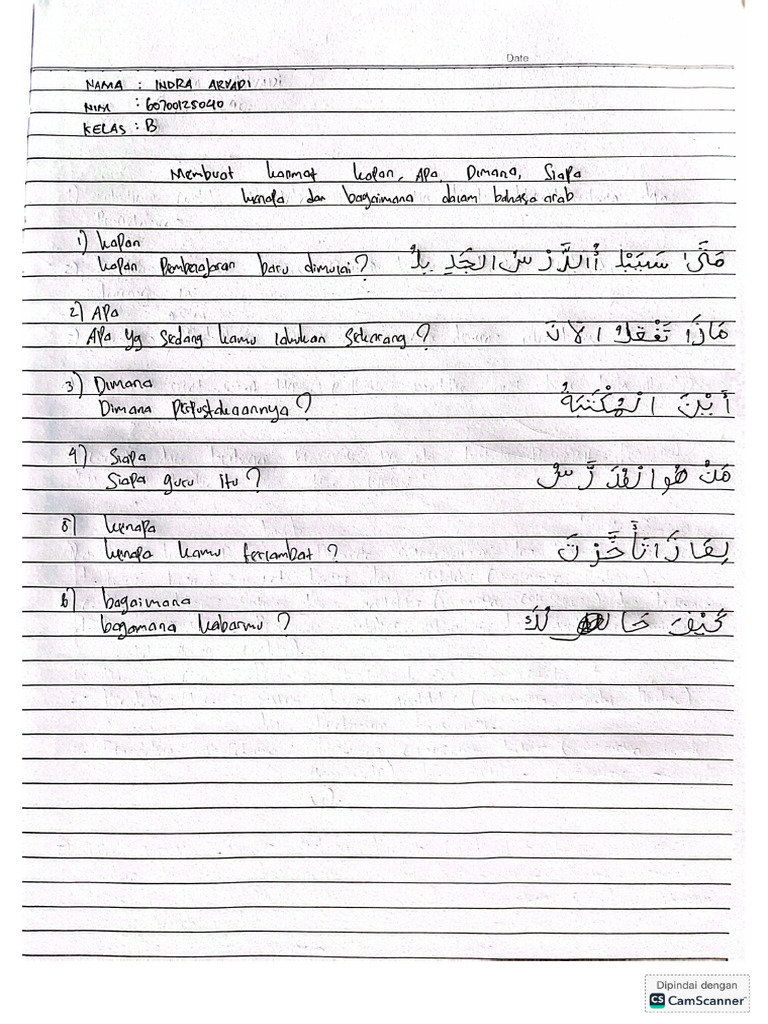 Date
NAMA : INDRA ARYADI
NIM : 60700125040
KELAS : B
Membuat kalimat kapan, Apa, Dimana, Siapa
kenapa dan bagaimana dalam bahasa arab
1) kapan
kapan Pembelajaran baru dimulai? مَتَى سَيَبْدَأُ الدَّرْسُ الْجَدِيدُ
2) APA
Apa yg sedang kamu lakukan sekarang? مَاذَا تَفْعَلُ الانَ
3) Dimana
Dimana Perpustakaannya? أَيْنَ الْمَكْتَبَةُ
4) Siapa
Siapa guru itu? مَنْ هُوَ الْمُدَرِّسُ
5) kenapa
kenapa kamu terlambat? لِمَاذَا تَأَخَّرْتَ
6) bagaimana
bagamana kabarmu? كَيْفَ حَالُكَ
Dipindai dengan
CS CamScanner